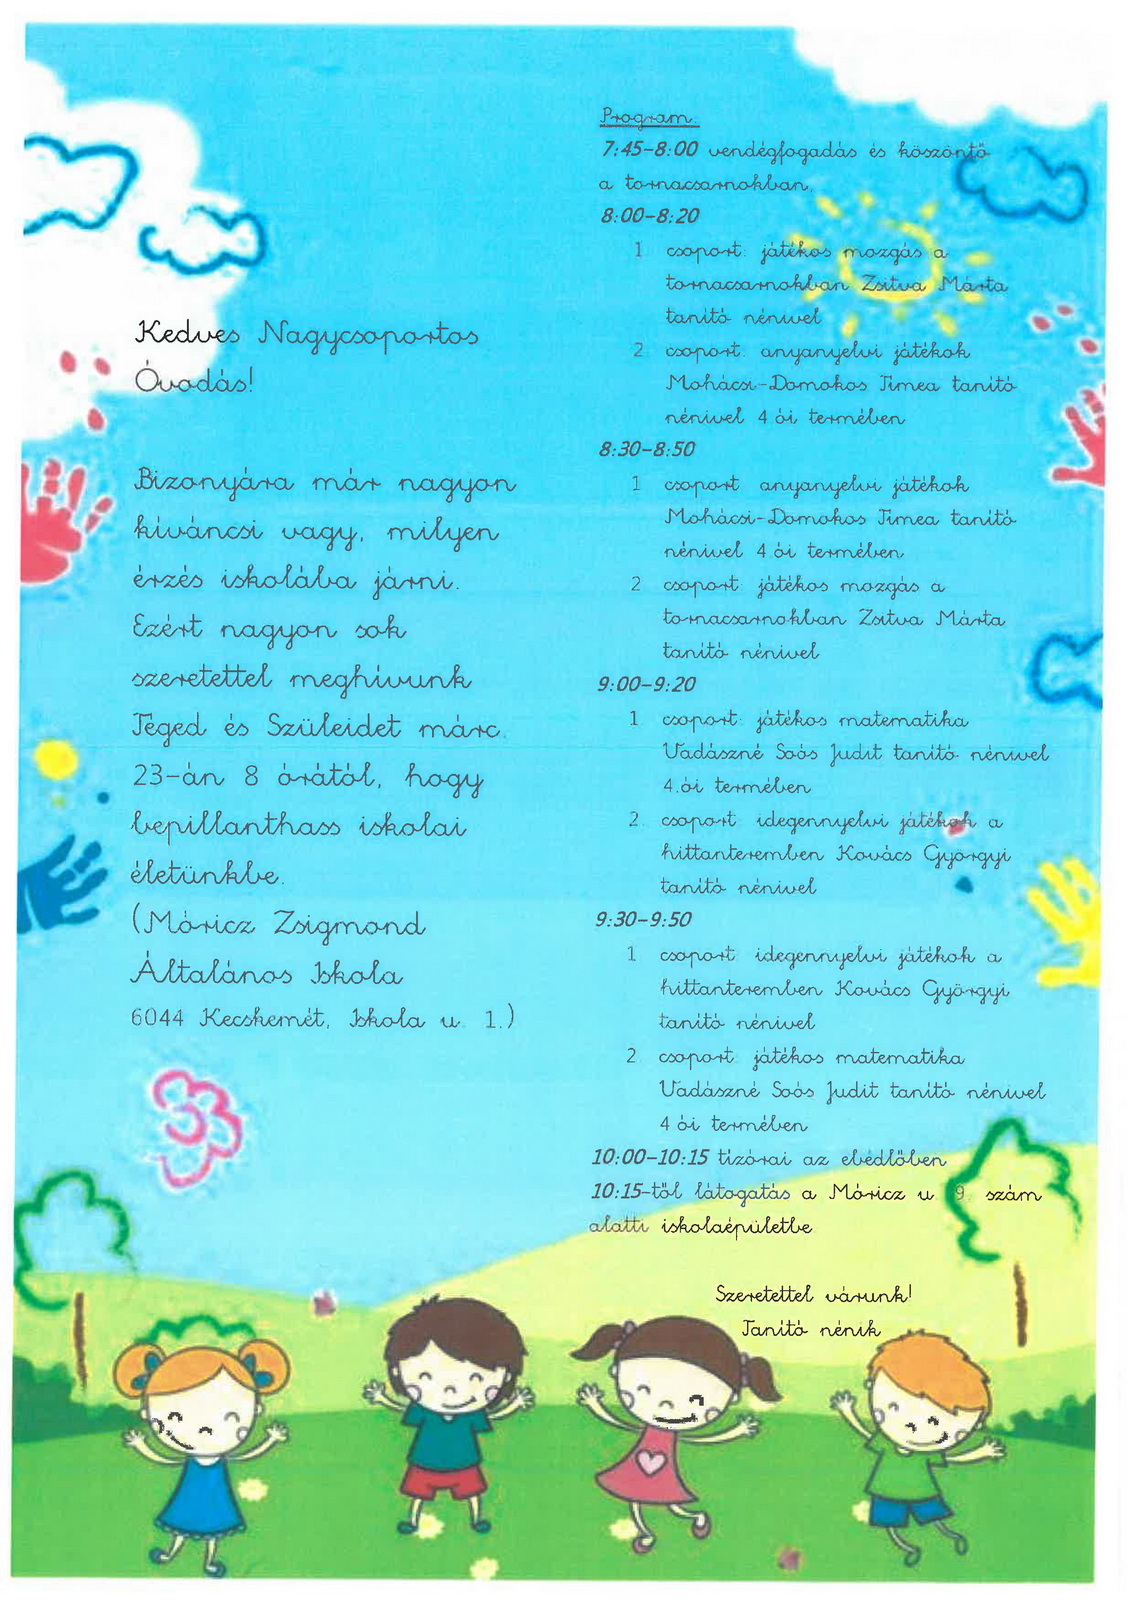 Kedves Nagycsoportos
Óvodás!
Bizonyára már nagyon
kíváncsi vagy, milyen
érzés iskolába járni.
Ezért nagyon sok
szeretettel meghívunk
Téged és Szüleidet márc.
23-án 8 órától, hogy
bepillanthass iskolai
életünkbe.
(Móricz Zsigmond
Általános Iskola
6044 Kecskemét, Iskola u. 1.)
Program:
7:45-8:00 vendégfogadás és köszöntő
a tornacsarnokban.
8:00-8:20
1 csoport: játékos mozgás a
tornacsarnokban Zsitva Márta
tanító nénivel
2 csoport: anyanyelvi játékok
Mohácsi-Domokos Tímea tanító
nénivel 4.ói termében
8:30-8:50
1 csoport anyanyelvi játékok
Mohácsi-Domokos Tímea tanító
nénivel 4 ói termében
2 csoport: játékos mozgás a
tornacsarnokban Zsitva Márta
tanító nénivel
9:00-9:20
1 csoport: játékos matematika
Vadászné Soós Judit tanító nénivel
4.ói termében
2. csoport idegennyelvi játékok a
hittanteremben Kovács Györgyi
tanító nénivel
9:30-9:50
1 csoport idegennyelvi játékok a
hittanteremben Kovács Györgyi
tanító nénivel
2. csoport: játékos matematika
Vadászné Soós Judit tanító nénivel
4 ói termében
10:00-10:15 tízórai az ebédlőben
10:15-től látogatás a Móricz u 9. szám
alatti iskolaépületbe
Szeretettel várunk!
Tanító nénik